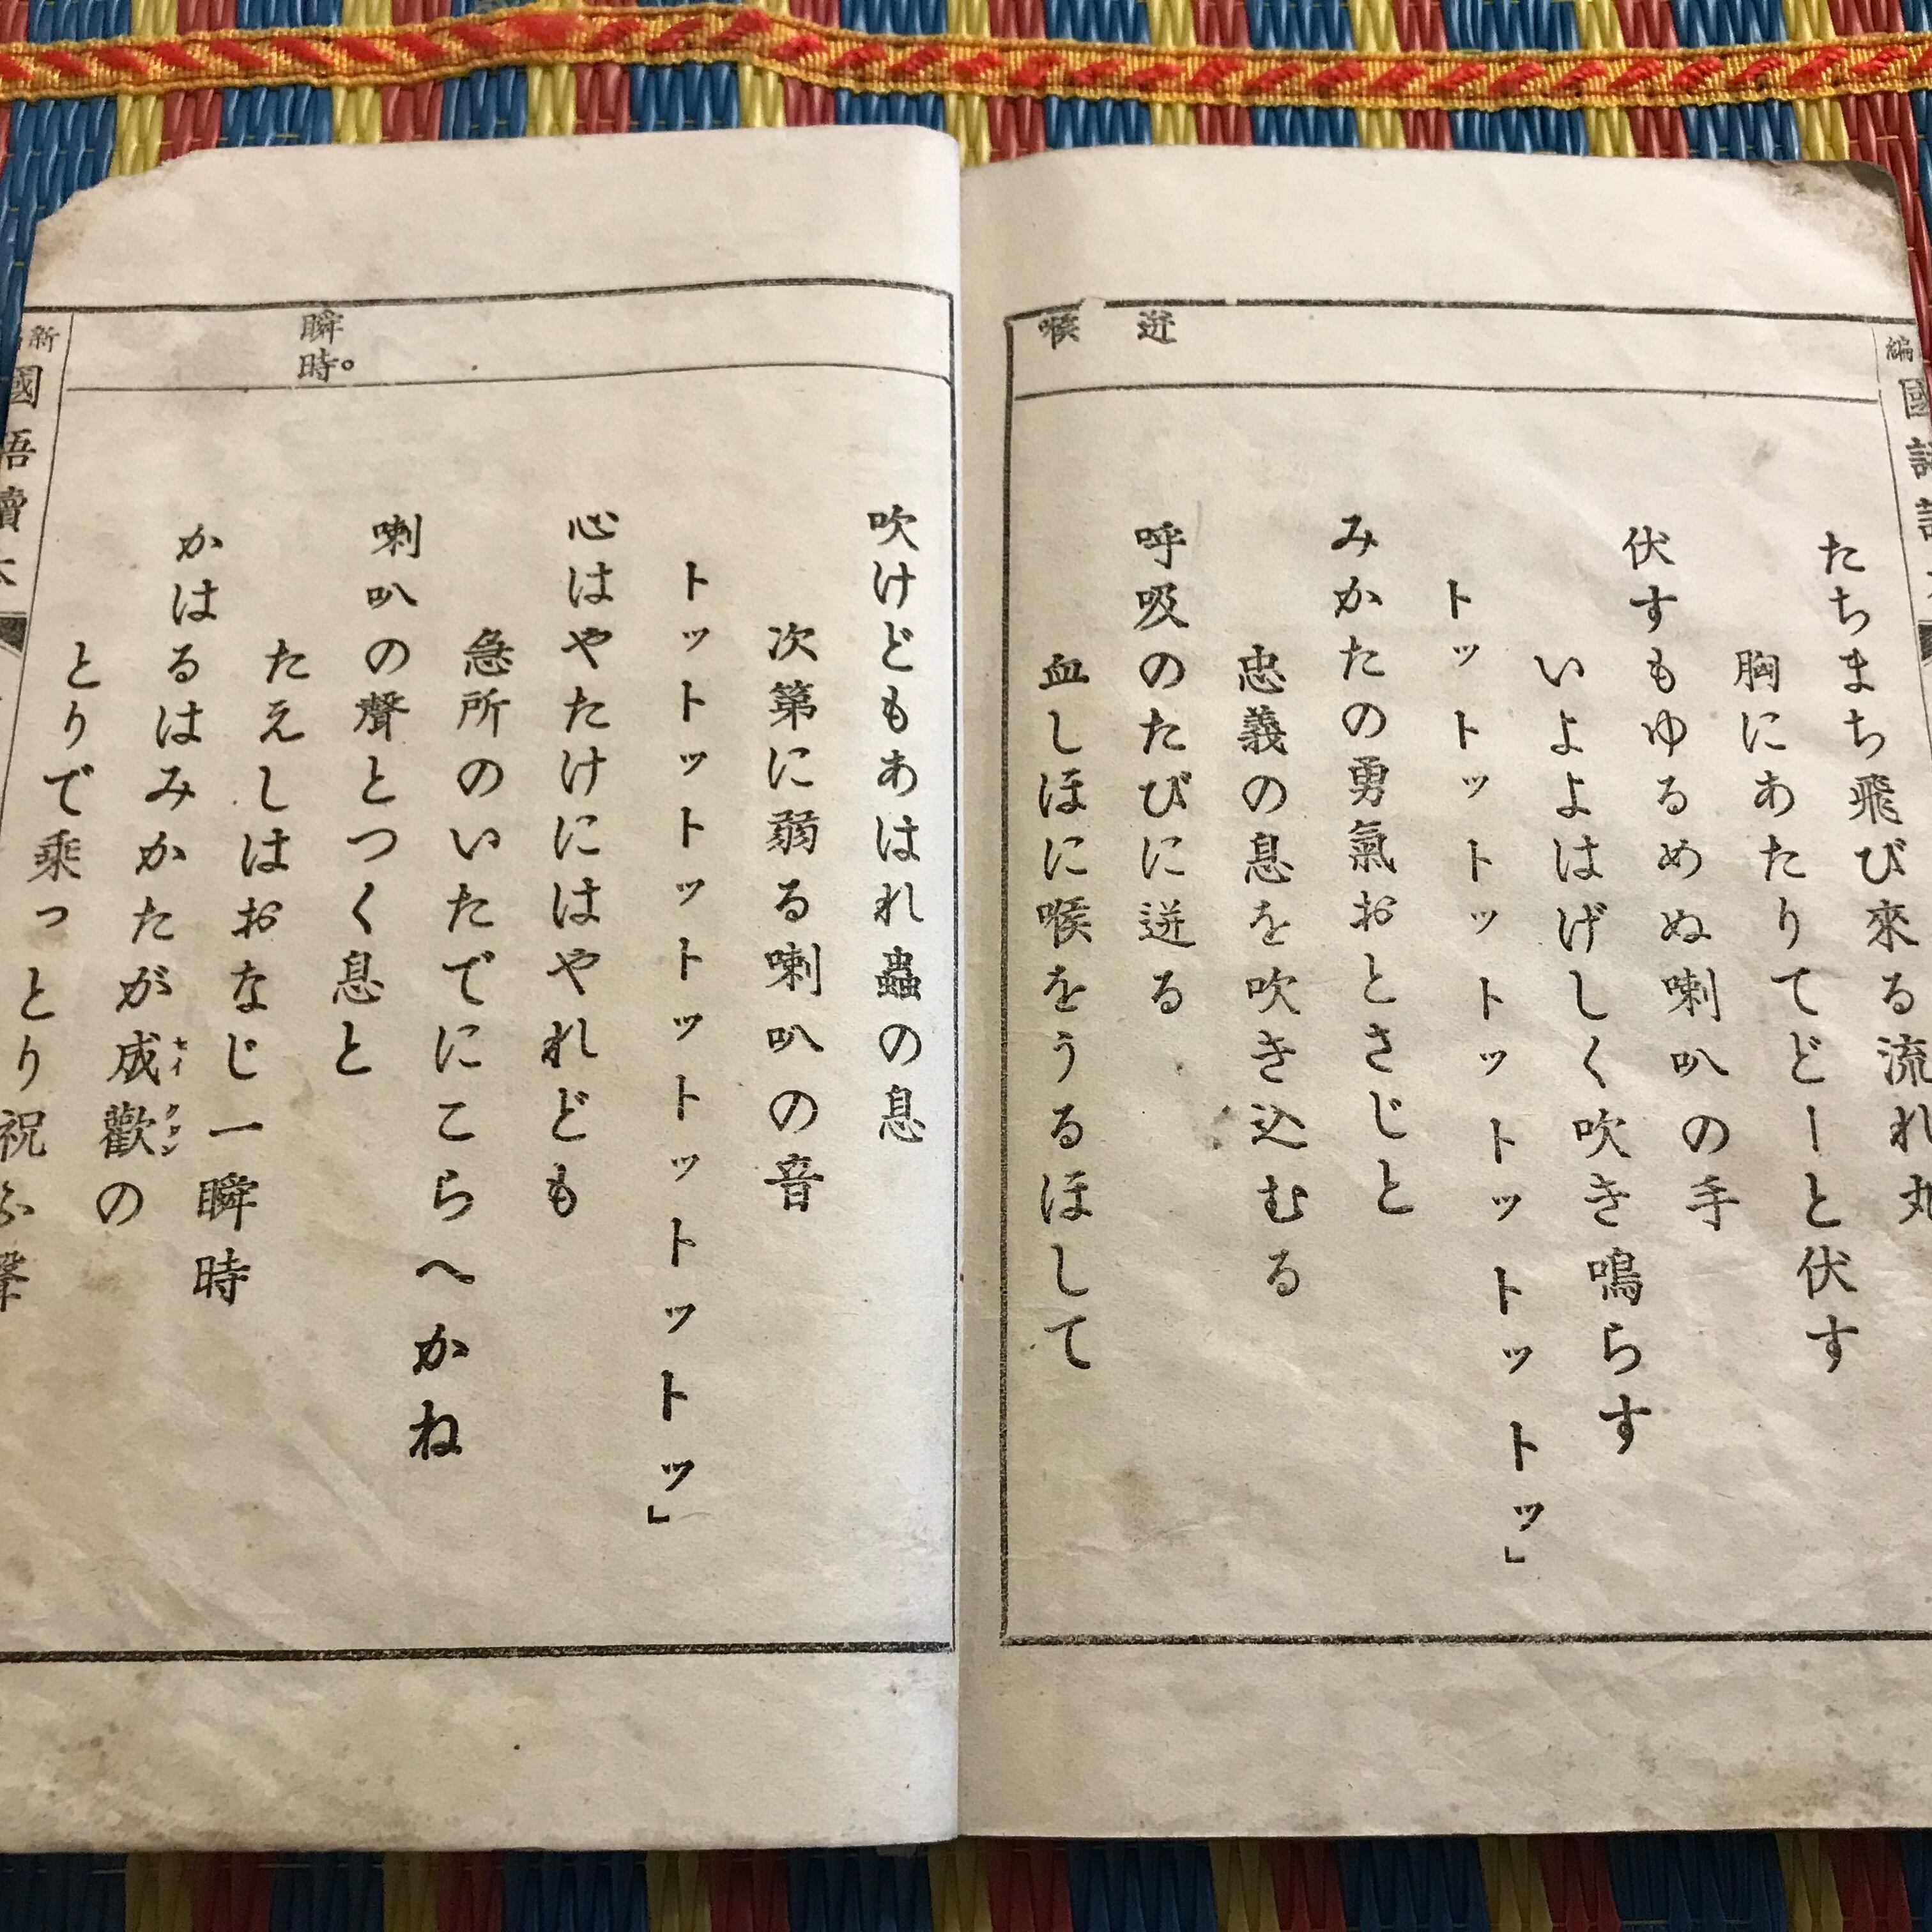 たちまち飛び來る流れ丸
胸にあたりてどーと伏す
伏すもゆるめぬ喇叭の手
いよよはげしく吹き鳴らす
トットットットットットットッ」
みかたの勇氣おとさじと
忠義の息を吹き込むる
呼吸のたびに迸る
血しほに喉をうるほして
迸
喉
吹けどもあはれ蟲の息
次第に弱る喇叭の音
トットットットットットットッ」
心はやたけにはやれども
急所のいたでにこらへかね
喇叭の聲とつく息と
たえしはおなじ一瞬時
かはるはみかたが成歡の
セイクワン
とりで乘っとり祝ふ聲
瞬時。